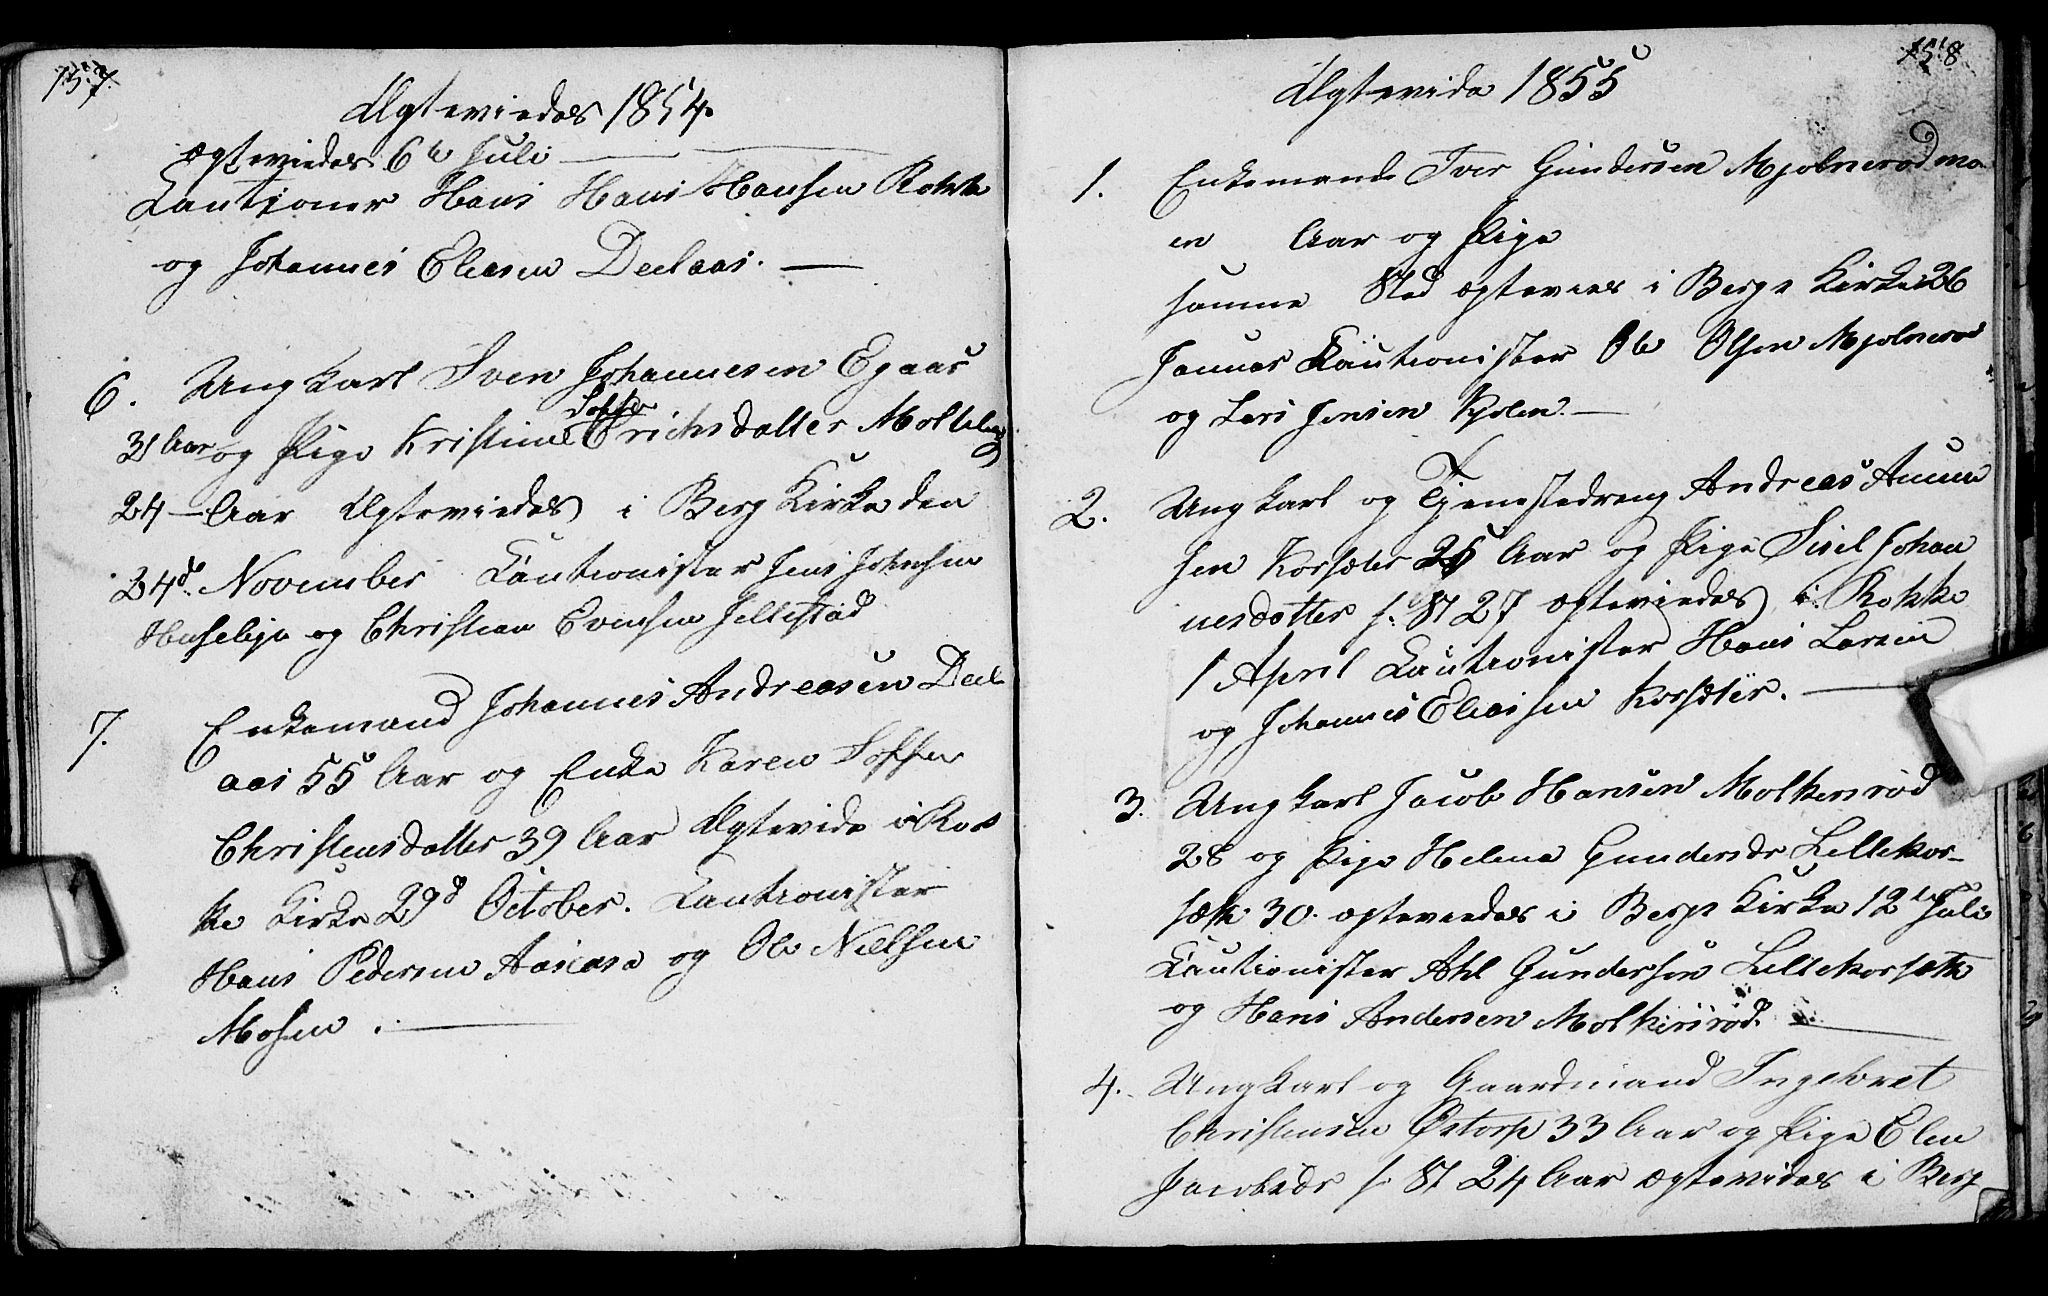 157.
Ægteviedes 1854.
ægteviedes 6te Juli
Cautioner Hans Hans Hansen Rokke
og Johannes Eliasen Deelaas.
6. Ungkarl Sven Johannesen Egaas
31 Aar og Pige Kristine Soffie Erichsdatter Molteberg
24 Aar Ægteviedes i Berg Kirke den
24de November Cautionister Jens Johnsen
Huseleje og Christian Evensen Jellestad
7. Enkemand Johannes Andreasen Deel
aas 55 Aar og Enke Karen Soffie
Christensdatter 39 Aar Ægtevide i Rok
ke Kirke 29d October. Cautionister
Hans Pedersen Aaseaa og Ole Nielsen
Mosen.
158
Ægtevide 1855
1. Enkemande Iver Gundersen Mjølnerød
en Aar og Pige
samme Sted ægtevies i Bergs Kirke 26
Januar Cautionister Ole Olsen Mjølnerød
og Lars Jensen Kjølen.
2. Ungkarl og Tjenestedreng Andreas Anun
sen Korsæter 25 Aar og Pige Sisel Johan
nesdatter s. St 27 ægteviedes i Rokke
1 April Cautionister Hans Larsen
og Johannes Eliassen Korsæter.
3. Ungkarl Jacob Hansen Molkersrød
28 og Pige Helene Gundersdr Lillekor-
sæth 30. ægteviedes i Bergs Kirke 12te Juli
Cautionister Ahl Gundersen Lillekorsæth
og Hans Andersen Molkersrød.
4. Ungkarl og Gaardmand Ingebret
Christensen Østorp 33 Aar og Pige Elen
Jacobsdr s. St 24 Aar ægtevides i Berg